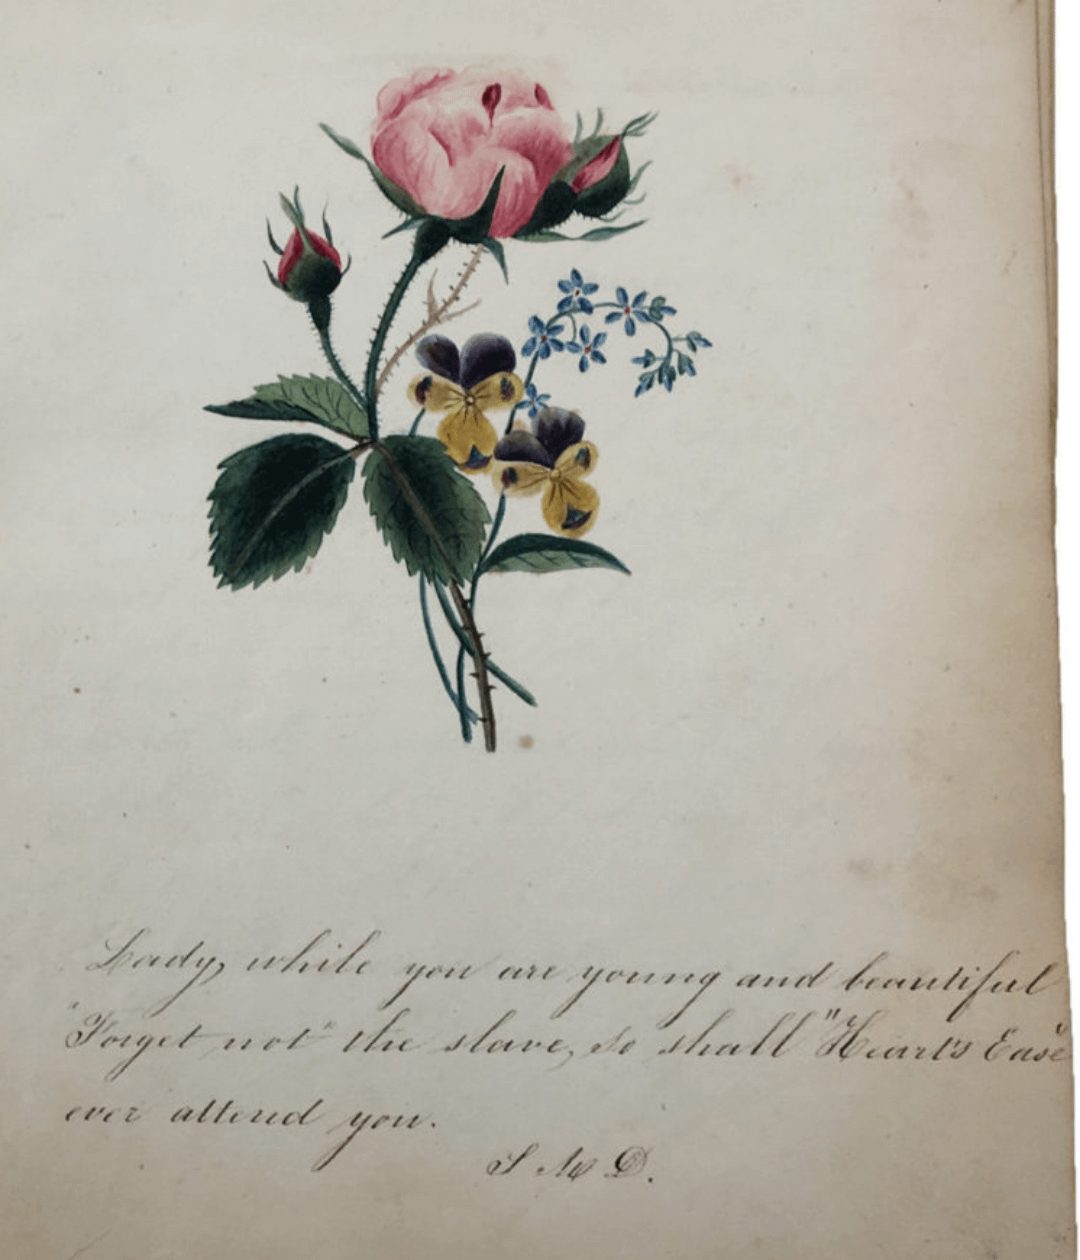 Lady, while you are young and beautiful
"Forget not" the slave, so shall "Heart's Ease"
ever attend you.
S M D.